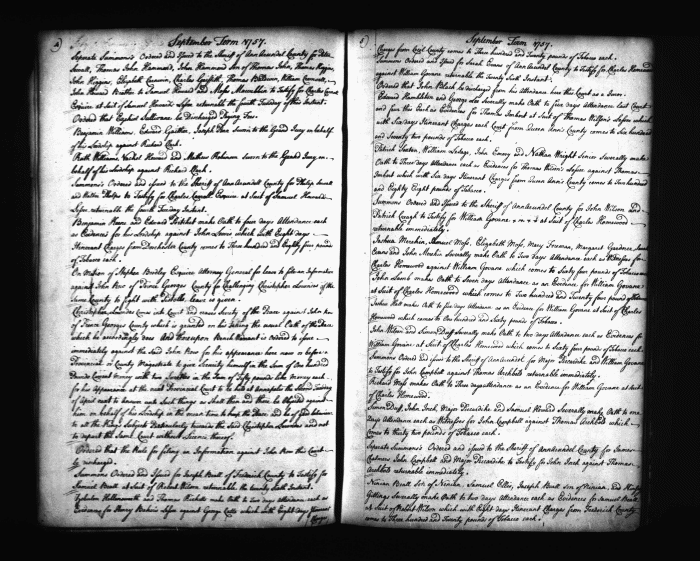 September Term 1757.
Separate Summons's Ordered and Issued to the Sheriff of Ann Arundel County for Peter
Sewell, Thomas John Hammond, John Hammond Son of Thomas John, Thomas Higgins,
John Higgins, Elizabeth Charles Griffith, Thomas William
John Howard Brother to Samuel Howard and to Testify for Charles
Esquire at Suit of Samuel Howard's returnable the fourth Tuesday of this Instant.
Ordered that Sullivane be Discharged Paying Fees.
Benjamin Williams, Edward Gaither, Joseph Sworn to the Grand Jury on behalf
of his Lordship against Richard
Ruth Williams, Howard and Mathew Robinson sworn to the Grand Jury on
behalf of his Lordship against Richard
Summons's Ordered and Issued to the Sheriff of Ann Arundel County for Philip
and Walter Phelps to Testify for Charles Esquire at Suit of Samuel Howard's
returnable the fourth Tuesday Instant.
Benjamin and Edward make Oath to five days Attendance each
as Evidences for his Lordship against John which with Eight days
Itinerant Charges from Dorchester County comes to Three hundred and Eighty four pounds
of Tobacco each.
On Motion of Stephen Bordley Esquire Attorney General for leave to file an Information
against John of Prince Georges County for Challenging Christopher Lowndes of the
Same County to fight with Pistolls, leave is given.
Christopher Lowndes comes into Court and craves Surety of the Peace against John
of Prince Georges County which is granted on his taking the usual Oath of the Peace
which he accordingly does and thereupon Bench Warrant is Ordered to issue
immediately against the said John for his appearance here now or before a
Provincial or County Magistrate to give Security himself in the Sum of One hundred
Pounds Current Money with two Sureties in the Sum of fifty pounds like Money each
for his appearance at the next Provincial Court to be held at Annapolis the Second Tuesday
of April next to answer such things as shall then and there be Objected against
him on behalf of his Lordship in the mean time to keep the Peace and be of good behaviour
to all the Kings Subjects Particularly towards the said Christopher Lowndes and not
to depart the same Court without Licence thereof.
Ordered that the Rule for filing an Information against John this Court
be discharged.
Summons Ordered and Issued for Joseph Beall of Frederick County to Testify for
Samuel Beall at Suit of Wilson returnable the twenty Instant.
and Thomas make Oath to two days Attendance each as
Evidences for Henry against George which with Eight days Itinerant
Charges
September Term 1757.
Charges from Cecil County comes to Three hundred and Twenty pounds of Tobacco each.
Summons Ordered and Issued for Sarah Evans of Ann Arundel County to Testify for Charles Homewood
against William Govane returnable the Twenty Sixth Instant.
Ordered that John be discharged from his attendance here this Court as a Juror.
Edward Hambleton and George Severally make Oath to five days Attendance last Court
and five this Each as Evidences for Thomas at Suit of Thomas Wilson's Lessee which
with Six days Itinerant Charges each Court from Queen Anns County comes to Six hundred
and Seventy two pounds of Tobacco each.
Patrick William John Emory and Nathan Wright Senior Severally make
Oath to Three days attendance each as Evidences for Thomas Wilson's Lessee against Thomas
which with Six days Itinerant Charges from Queen Anns County comes to Two hundred
and Eighty Eight pounds of Tobacco.
Summons Ordered and Issued to the Sheriff of Ann Arundel County for John Wilson and
Patrick to Testify for William Govane at Suit of Charles Homewood
returnable immediately.
Joshua Samuel Elizabeth Mary Foreman, Margaret Gardner, Sarah
Evans and John Severally make Oath to Two days Attendance each as Witnesses for
Charles Homewood against William Govane which comes to Sixty four pounds of Tobacco each
John Lamb makes Oath to Seven days Attendance as an Evidence for William Govane
at Suit of Charles Homewood which comes to Two hundred and Twenty four pounds of Tobacco
Joshua makes Oath to five days Attendance as an Evidence for William Govane at Suit of Charles
Homewood which comes to One hundred and Sixty pounds of Tobacco.
John Wilson and Simon Duff severally make Oath to two days Attendance each as Evidences for
William Govane at Suit of Charles Homewood which comes to Sixty four pounds of Tobacco each.
Summons Ordered and Issued to the Sheriff of Ann Arundel for Major and William Govane
to Testify for John Campbell against Thomas returnable immediately.
Richard makes Oath to Three days attendance as an Evidence for William Govane at Suit
of Charles Homewood.
Simon Duff, John Inch, Major and Samuel Howard Severally make Oath to one
days Attendance each as Witnesses for John Campbell against Thomas which
comes to thirty two pounds of Tobacco each.
Separate Summons's Ordered and Issued to the Sheriff of Ann Arundel County for James
John Campbell and Major to Testify for John Inch against Thomas
returnable immediately.
Ninian Beall Son of Ninian, Samuel Ellis, Joseph Beall son of Ninian, and
Severally make Oath to two days Attendance each as Evidences for Samuel Beall
at Suit of Wilson which with Eight days Itinerant Charges from Frederick County
comes to Three hundred and Twenty pounds of Tobacco each.